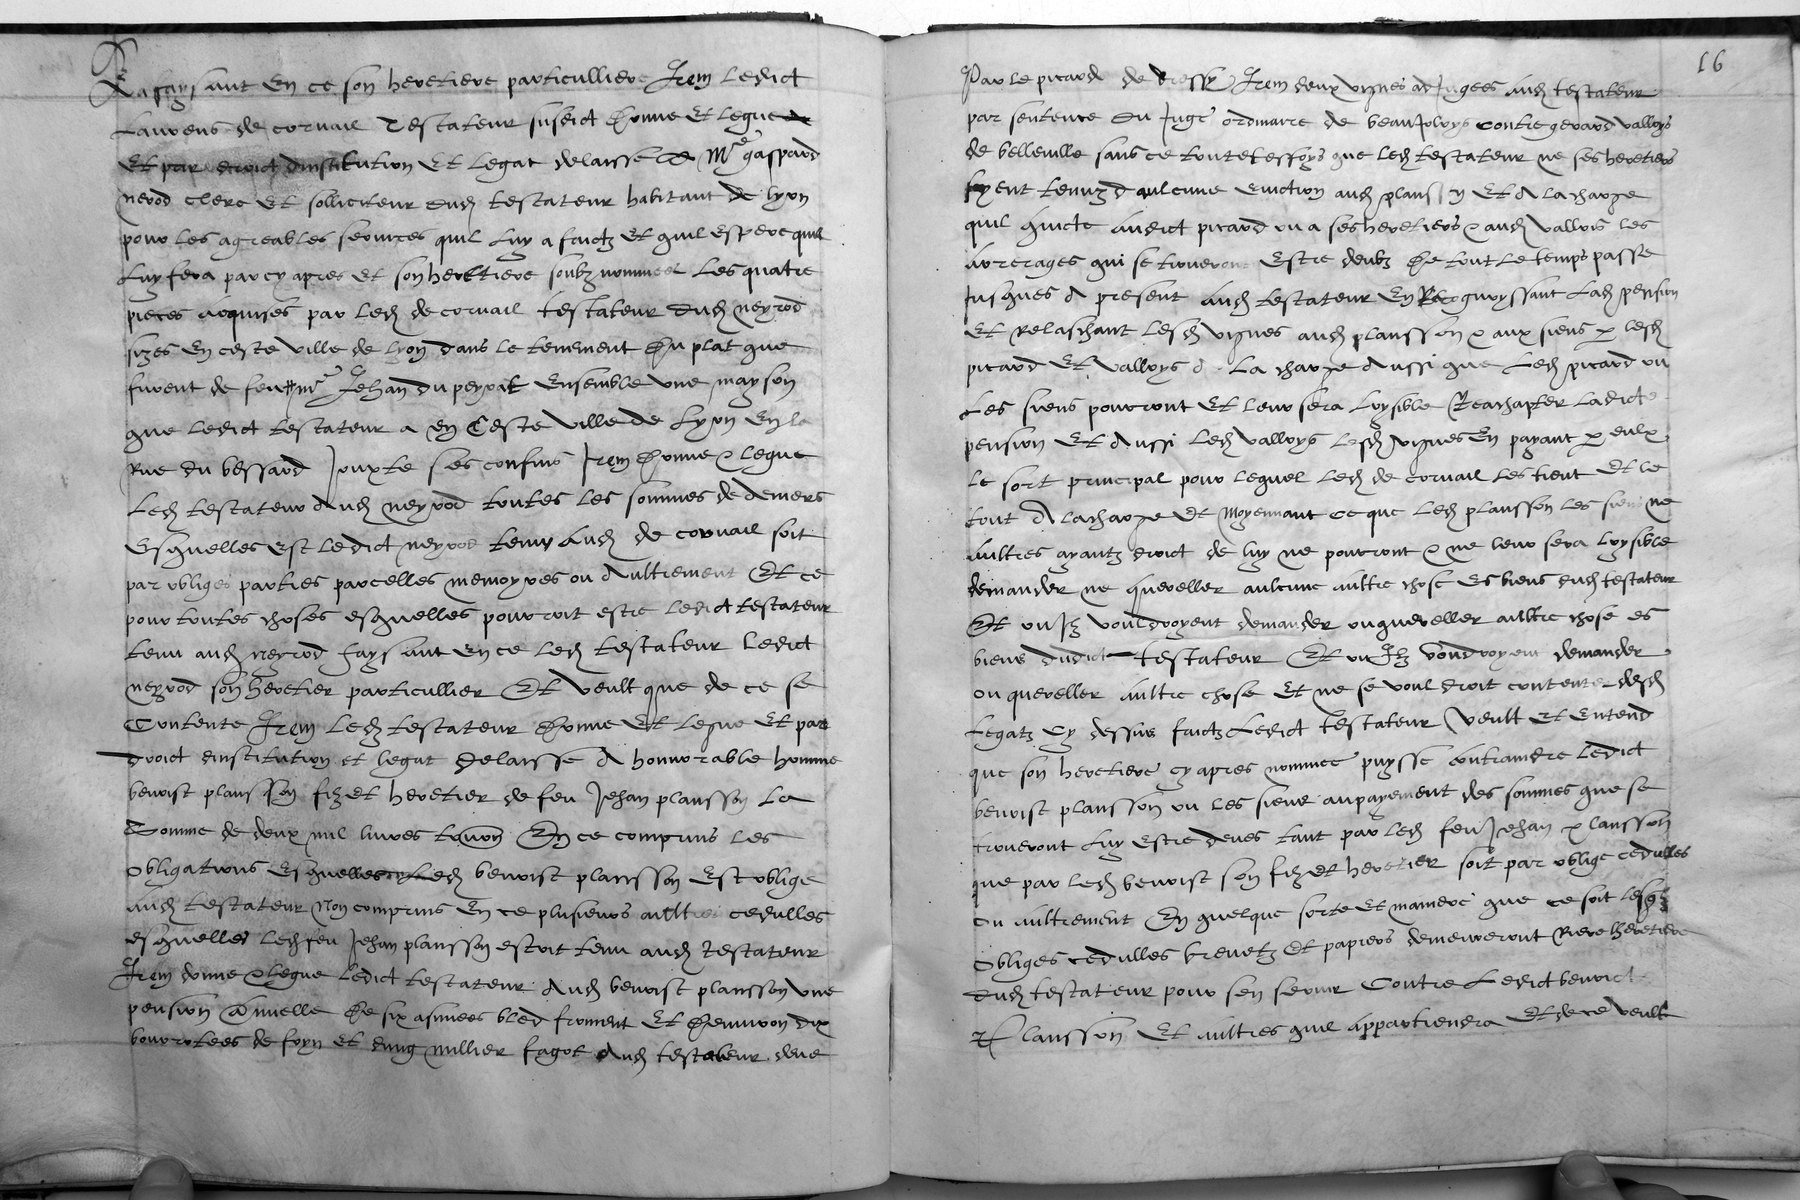 La faysant en ce son heretiere particulliere Item ledict
Laurens de corvail testateur susdict donne et legue
et par droict dinstitution et legat delaisse a Mre gaspard
neyrod clerc et solliciteur dud testateur habitant de lyon
pour les agreables services quil luy a faictz et quil espere quil
luy fera par cy apres et son heretiere soubz nommee les quatre
pieces acquises par led de corvail testateur dud neyrod
sizes en ceste ville de lyon dans le tenement du plat que
furent de feu mre Jehan du peyrat ensemble une mayson
que ledict testateur a en ceste ville de Lyon en la
rue du bessard jouxte ses confins Item donne & legue
led testateur aud neyrod toutes les sommes de deniers
esquelles est ledict neyrod tenu aud de corvail soit
par obliges parties parcelles memoyres ou aultrement Et ce
pour toutes choses esquelles pourroit estre ledict testateur
tenu aud neyrod faysant en ce led testateur ledict
neyrod son heretier particullier Et veult que de ce se
contente Item led testateur donne et legue et par
droict dinstitution et legat delaisse a honnorable homme
benoist plansson filz et heretier de feu Jehan plansson la
somme de deux mil livres tournois En ce comprins les
obligations esquelles led benoist plansson est oblige
aud testateur Non comprins en ce plusieurs aultres cedulles
esquelles led feu Jehan plansson estoit tenu aud testateur
Item donne & legue ledict testateur aud benoist plansson une
pension annuelle de six asnees bled froment et denviron dix
bourrotees de foyn et dung millier fagot aud testateur deue
16
Par le picard de dressy Item deux vignes adjugees aud testateur
par sentence du juge ordinaire de beaujoloys contre gerard valloys
de belleville sans ce toutesfoys que led testateur ne ses heretiers
soyent tenuz daulcune eviction aud plansson et a la charge
quil quicte audict picard ou a ses heretiers & aud vallois les
arrerages qui se trouveront estre deubz de tout le temps passe
jusques a present aud testateur en recognoyssant lad pension
et relaschant lesd vignes aud plansson & aux siens p lesd
picard et valloys a la charge aussi que led picard ou
les siens pourront et leur sera loysible reachapter ladicte
pension et aussi led valloys lesd vignes en payant p eulx
le sort principal pour lequel led de corvail les tient et le
tout a la charge et moyennant ce que led plansson les siens ne
aultres ayantz droict de luy ne pourront & ne leur sera loysible
demander ne quereller aulcune aultre chose es biens dud testateur
Et ou ilz vouldroyent demander ou quereller aultre chose es
biens dudict testateur Et ou ilz vouldroyent demander
ou quereller aultre chose et ne se vouldroit contenter desd
legatz cy dessus faictz ledict testateur veult et entend
que son heretiere cy apres nommee puysse contraindre ledict
benoist plansson ou les siens au payement des sommes que se
trouveront luy estre deues tant par led feu Jehan plansson
que par led benoist son filz et heretier soit par oblige cedulles
ou aultrement En quelque sorte et maniere que ce soit lesqlz
obliges cedulles brevetz et papiers demeureront riere lheretiere
dud testateur pour sen servir contre ledict benoict
Plansson et aultres quil appartiendra Et de ce veult